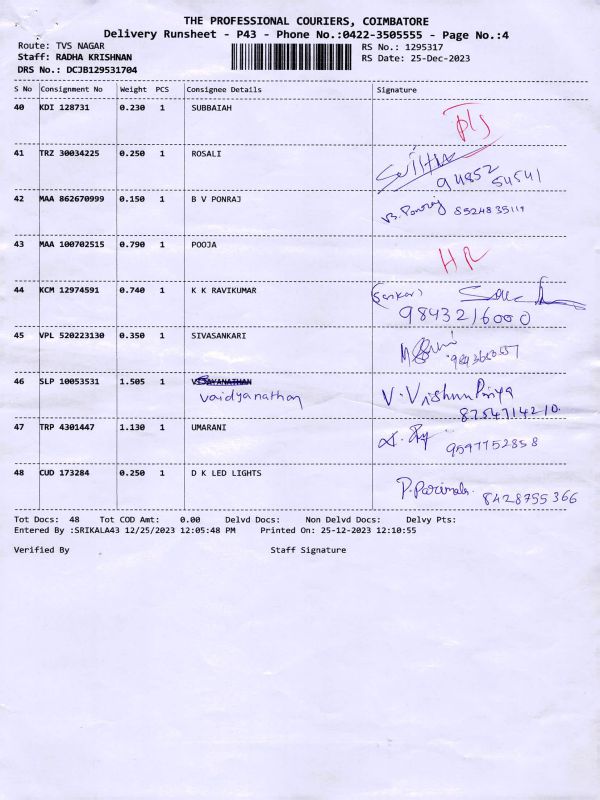 THE PROFESSIONAL COURIERS, COIMBATORE
Delivery Runsheet - P43 - Phone No.:0422-3505555 - Page No.:4
Route: TVS NAGAR RS No.: 1295317
Staff: RADHA KRISHNAN RS Date: 25-Dec-2023
DRS No.: DCJB129531704
S No Consignment No Weight PCS Consignee Details Signature
40 KDI 128731 0.230 1 SUBBAIAH
41 TRZ 30034225 0.250 1 ROSALI
94852 54541
42 MAA 862670999 0.150 1 B V PONRAJ
B. Ponraj 8524835114
43 MAA 100702515 0.790 1 POOJA
HR
44 KCM 12974591 0.740 1 K K RAVIKUMAR
9843216000
45 VPL 520223130 0.350 1 SIVASANKARI
46 SLP 10053531 1.505 1
vaidyanathan V. Vishnu Priya
8754714210.
47 TRP 4301447 1.130 1 UMARANI
9597752858
48 CUD 173284 0.250 1 D K LED LIGHTS
P. Parimala 8428755366
Tot Docs: 48 Tot COD Amt: 0.00 Delvd Docs: Non Delvd Docs: Delvy Pts:
Entered By :SRIKALA43 12/25/2023 12:05:48 PM Printed On: 25-12-2023 12:10:55
Verified By Staff Signature